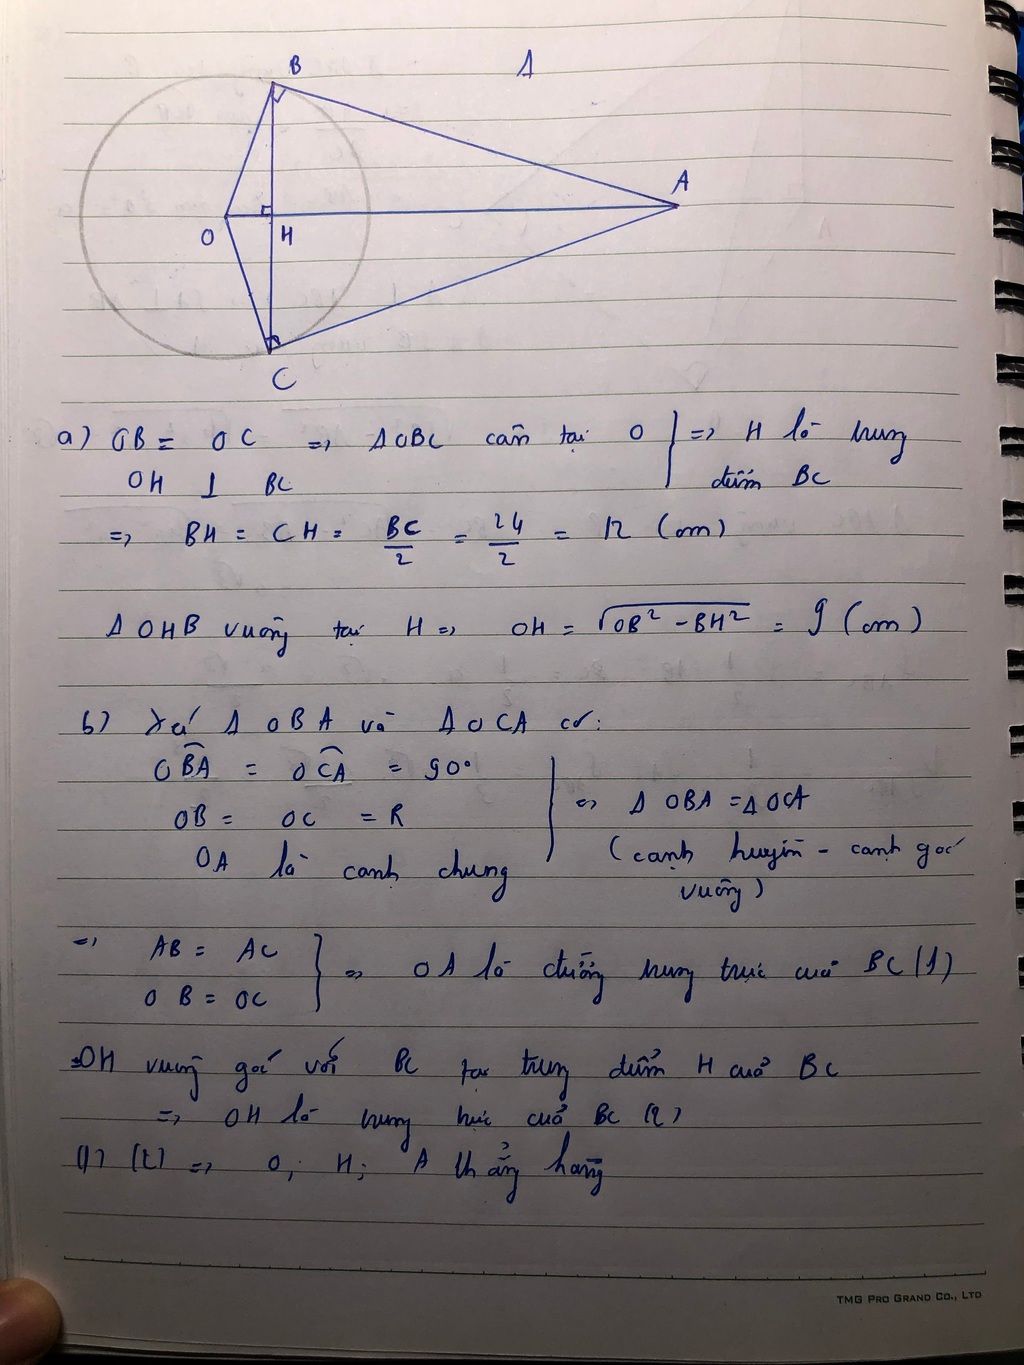 B
1
A
O
H
C
a) OB = OC => Δ OBC cân tại O => H là trung
OH ⊥ BC điểm BC
=> BH = CH = BC/2 = 24/2 = 12 (cm)
Δ OHB vuông tại H => OH = √OB² - BH² = 9 (cm)
b) Xét Δ OBA và Δ OCA có:
OBA = OCA = 90°
OB = OC = R => Δ OBA = Δ OCA
OA là cạnh chung (cạnh huyền - cạnh góc
vuông)
=> AB = AC
OB = OC => OA là đường trung trực của BC (1)
OH vuông góc với BC tại trung điểm H của BC
=> OH là trung trực của BC (2)
(1) (2) => O; H; A thẳng hàng
TMG PRO GRAND CO., LTD